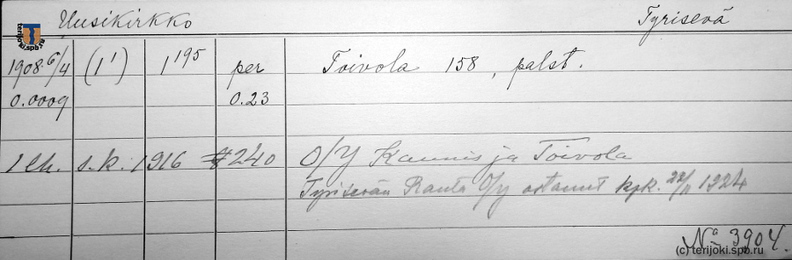 Uusikirkko Tyrisevä
1908 6/4 (1') 1195 per Toivola 158, palst.
0.0009 0.23
1 lh. s.k. 1916 #240 O/Y Kaunis ja Toivola
Tyrisevän Ranta O/y ostanut kpk. 22/11 1924
No 3904.
(c) terijoki.spb.ru
terijoki.spb.ru